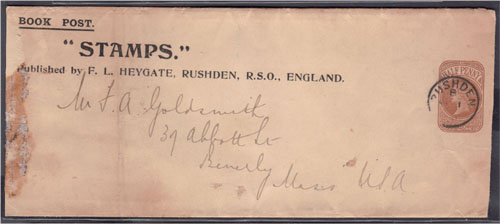 BOOK POST.
"STAMPS."
Published by F. L. HEYGATE, RUSHDEN, R.S.O., ENGLAND.
HALF PENNY
RUSHDEN
Mr F. A Goldsmith
39 Abbott St
Beverly Mass USA